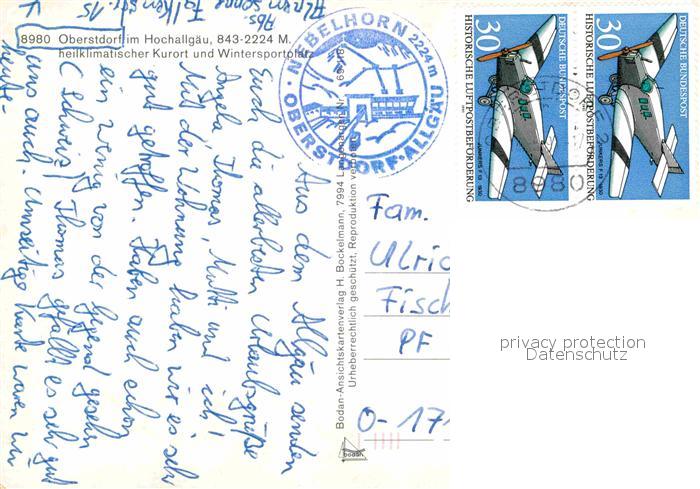 8980 Oberstdorf im Hochallgäu, 843-2224 M.
heilklimatischer Kurort und Wintersportplatz
Abs.
Falkenstr. 15
Aus dem Allgäu senden
Euch die allerbesten Urlaubsgrüße
Angela, Thomas, Mutti und ich!
Mit der Wohnung haben wir es sehr
gut getroffen. Haben auch schon
ein wenig von der Gegend gesehen
(Schweiz) Thomas gefällt es sehr gut
uns auch. Umseitige Karte waren wir
heute.
NEBELHORN 2224 m
OBERSTDORF · ALLGÄU
Bodan-Ansichtskartenverlag H. Bockelmann, 7994 Langenargen
Urheberrechtlich geschützt, Reproduktion verboten
bodan
Fam.
Ulric
Fisch
PF
O-171
30
DEUTSCHE BUNDESPOST
HISTORISCHE LUFTPOSTBEFÖRDERUNG
JUNKERS F 13 1930
30
DEUTSCHE BUNDESPOST
HISTORISCHE LUFTPOSTBEFÖRDERUNG
JUNKERS F 13 1930
898
privacy protection
Datenschutz